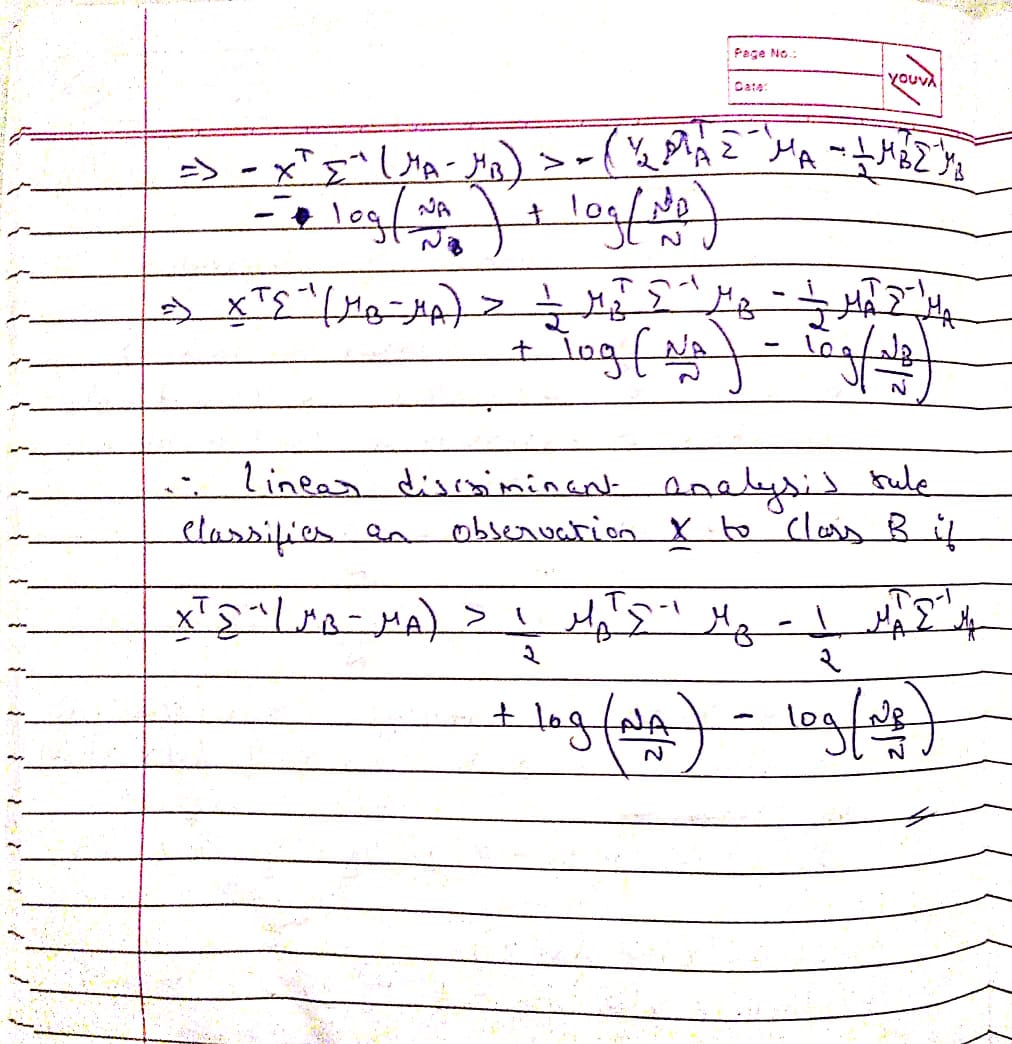 Page No.:
Date:
YOUVA
⇒ - x^T Σ^-1 (μA - μB) > - (1/2 μA^T Σ^-1 μA - 1/2 μB^T Σ^-1 μB
- log(NA/N) + log(NB/N)
⇒ x^T Σ^-1 (μB - μA) > 1/2 μB^T Σ^-1 μB - 1/2 μA^T Σ^-1 μA
+ log(NA/N) - log(NB/N)
∴ linear discriminant analysis rule
classifies an observation x to class B if
x^T Σ^-1 (μB - μA) > 1/2 μB^T Σ^-1 μB - 1/2 μA^T Σ^-1 μA
+ log(NA/N) - log(NB/N)